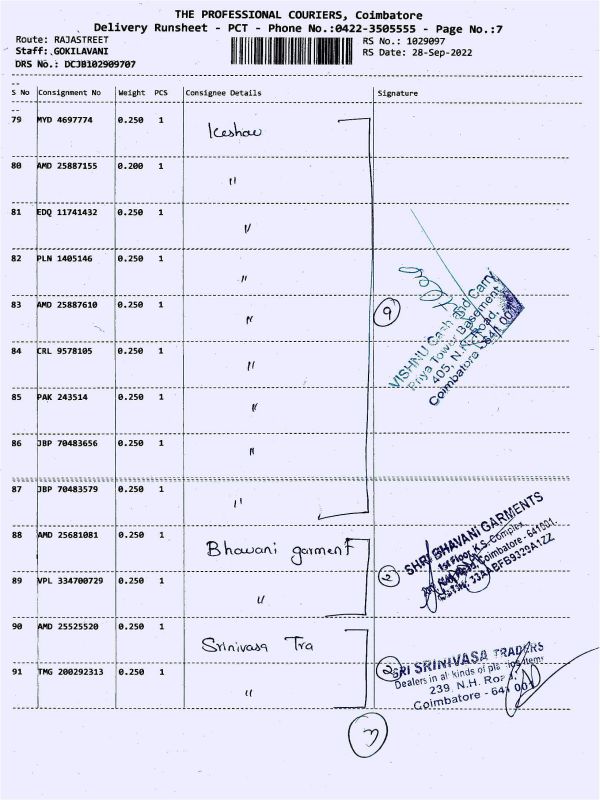 THE PROFESSIONAL COURIERS, Coimbatore
Delivery Runsheet - PCT - Phone No.:0422-3505555 - Page No.:7
Route: RAJASTREET
Staff: GOKILAVANI
DRS No.: DCJB102909707
RS No.: 1029097
RS Date: 28-Sep-2022
S No Consignment No Weight PCS Consignee Details Signature
79 MYD 4697774 0.250 1 Keshav
80 AMD 25887155 0.200 1 "
81 EDQ 11741432 0.250 1 "
82 PLN 1405146 0.250 1 "
83 AMD 25887610 0.250 1 "
84 CRL 9578105 0.250 1 "
85 PAK 243514 0.250 1 "
86 JBP 70483656 0.250 1 "
87 JBP 70483579 0.250 1 "
9
VISHNU Cash and Carry
Priya Tower Basement
405, N.H. Road,
Coimbatore - 641 001
88 AMD 25681081 0.250 1 Bhavani garment
89 VPL 334700729 0.250 1 "
2
SHRI BHAVANI GARMENTS
1st Floor, K.S. Complex
Road, Coimbatore - 641001
90 AMD 25525520 0.250 1 Srinivasa Tra
91 TMG 200292313 0.250 1 "
2
SRI SRINIVASA TRADERS
Dealers in all kinds of plastic items
239, N.H. Road,
Coimbatore - 641 001
3